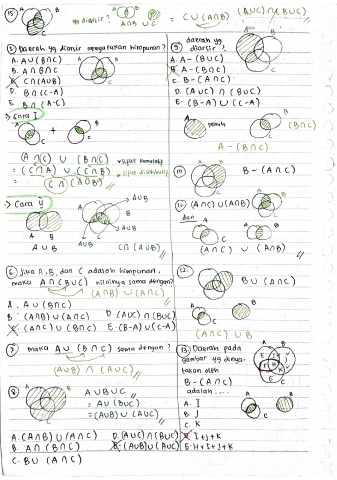 15) yg diarsir? A∩B ∪ C = C∪(A∩B) (A∪C)∩(B∪C)
5) Daerah yg diarsir menyatakan himpunan?
A. A∪(B∩C)
B. A∩B∩C
C∩(A∪B)
D. B∩(C-A)
E. B∩(A-C)
→ Cara I
A B
C
+
(A∩C) ∪ (B∩C) • sifat komutatif
= (C∩A) ∪ (C∩B) • sifat distributif
= C∩(A∪B)
→ Cara II
A B
A∪B
A∪B
C
A∪B
C∩(A∪B)
6) Jika A, B, dan C adalah himpunan.
maka A∩(B∪C) nilainya sama dengan?
(A∩B)∪(A∩C)
A. A∪(B∩C)
B. (A∪B)∪(A∩C) D. (A∪C)∩(B∪C)
(A∩C)∪(B∩C) E. (B-A)∪(C-A)
7) maka A∪(B∩C) sama dengan?
(A∪B)∩(A∪C)
8) A B
C
A∪B∪C
= A∪(B∪C)
= (A∪B)∪(A∪C)
A. (C∩B)∪(A∩C) D. (A∪C)∩(B∪C)
B. A∩(B∩C) (A∪B)∪(A∪C)
C. B∪(A∩C)
9) daerah yg diarsir?
A B
C
A. A-(B∪C)
A-(B∩C)
C. B-(A∩C)
D. (A∪C)∩(B∪C)
E. (B-A)∪(C-A)
A penuh
B
C
(B∩C)
A-(B∩C)
10) A B
C
B-(A∩C)
11) (A∩C)∪(A∩B)
dari A B
C
(A∩C) ∪ (A∩B)
12) A B
C
B∪(A∩C)
A B
C
(A∩C) ∪ B
13) Daerah pada
gambar yg dinya-
takan oleh
B-(A∩C)
adalah....
A. I
B. J
C. K
I+J+K
E. H+I+J+K
A B
C